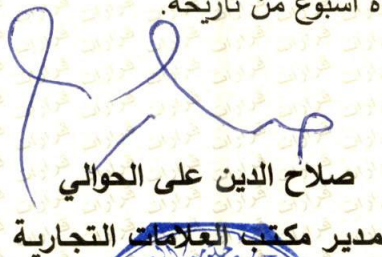 ه أسبوع من تاريخه.
صلاح الدين على الحوالي
مدير مكتب العلامات التجارية